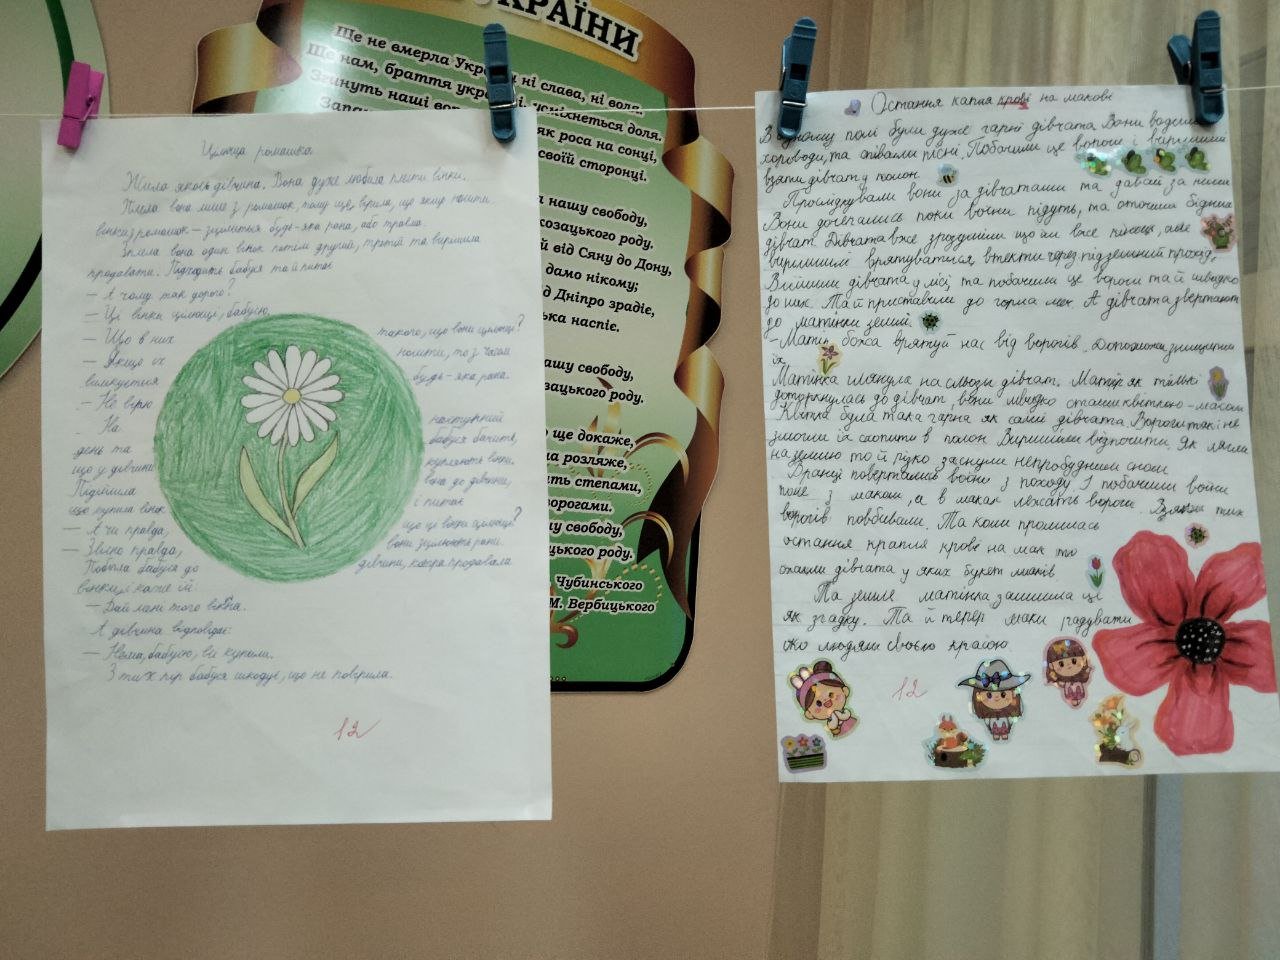 УКРАЇНИ
Ще не вмерла Укра и ні слава, ні воля.
Ще нам, браття укра і, усміхнеться доля.
Згинуть наші вор як роса на сонці,
Запан своїй сторонці.
нашу свободу,
козацького роду.
й від Сяну до Дону,
дамо нікому;
Дніпро зрадіє,
ька наспіє.
ашу свободу,
зацького роду.
о ще докаже,
на розляже,
ть степами,
орогами.
у свободу,
цького роду.
Чубинського
М. Вербицького
Цілюща ромашка
Жила якось дівчина. Вона дуже любила плести вінки.
Плела вона лише з ромашок, тому що, вірила, що якщо носити
вінки з ромашок – зцілиться будь-яка рана, або травма.
Зплела вона один вінок потім другий, третій та вирішила
продавати. Підходить бабуся та й питає
– А чому так дорого?
– Ці вінки цілющі, бабусю.
– Що в них такого, що вони цілющі?
– Якщо їх носити, то з часом
вилікується будь-яка рана.
– Не вірю
На наступний
день та бабуся бачить,
що у дівчини купляють вінки.
Підійшла вона до дівчини,
що купила вінок і питає
– А чи правда, що ці вінки цілющі?
– Звісно правда, вони зцілюють рани.
Побігла бабуся до дівчини, котра продавала
вінки і каже їй:
– Дай мені того вінка.
А дівчина відповідає:
– Нема, бабусю, всі купили.
З тих пір бабуся шкодує, що не повірила.
12
Остання капля крові на макові
В одному полі були дуже гарні дівчата Вони водили
хороводи, та співали пісні. Побачили це вороги і вирішили
взяти дівчат у полон
Прослідкували вони за дівчатами та давай за ними
Вони дочекались поки воїни підуть, та оточили бідних
дівчат. Дівчата вже зрозуміли що їм вже кінець, але
вирішили врятуватися втекти через підземний прохід.
Вийшли дівчата у лісі, та побачили це вороги та й швидко
до них. Та й приставили до горла меч. А дівчата звертают
до матінки землі.
– Мати божа врятуй нас від ворогів. Допоможи знищити
їх
Матінка глянула на сльози дівчат. Матір як тільки
доторкнулась до дівчат, вони швидко стали квіткою – маком
Квітка була така гарна як самі дівчата. Вороги так і не
змогли їх схопити в полон Вирішили відпочити. Як лягли
на землю то й різко заснули непробудним сном
Вранці повертались воїни з походу І побачили воїни
поле з маком, а в маках лежать вороги. Взяли тих
ворогів повбивали. Та коли пролилась
остання крапля крові на мак то
стали дівчата у яких букет маків.
Та земле матінка залишила це
як згадку. Та й тепер маки радувати
око людям своєю красою.
12